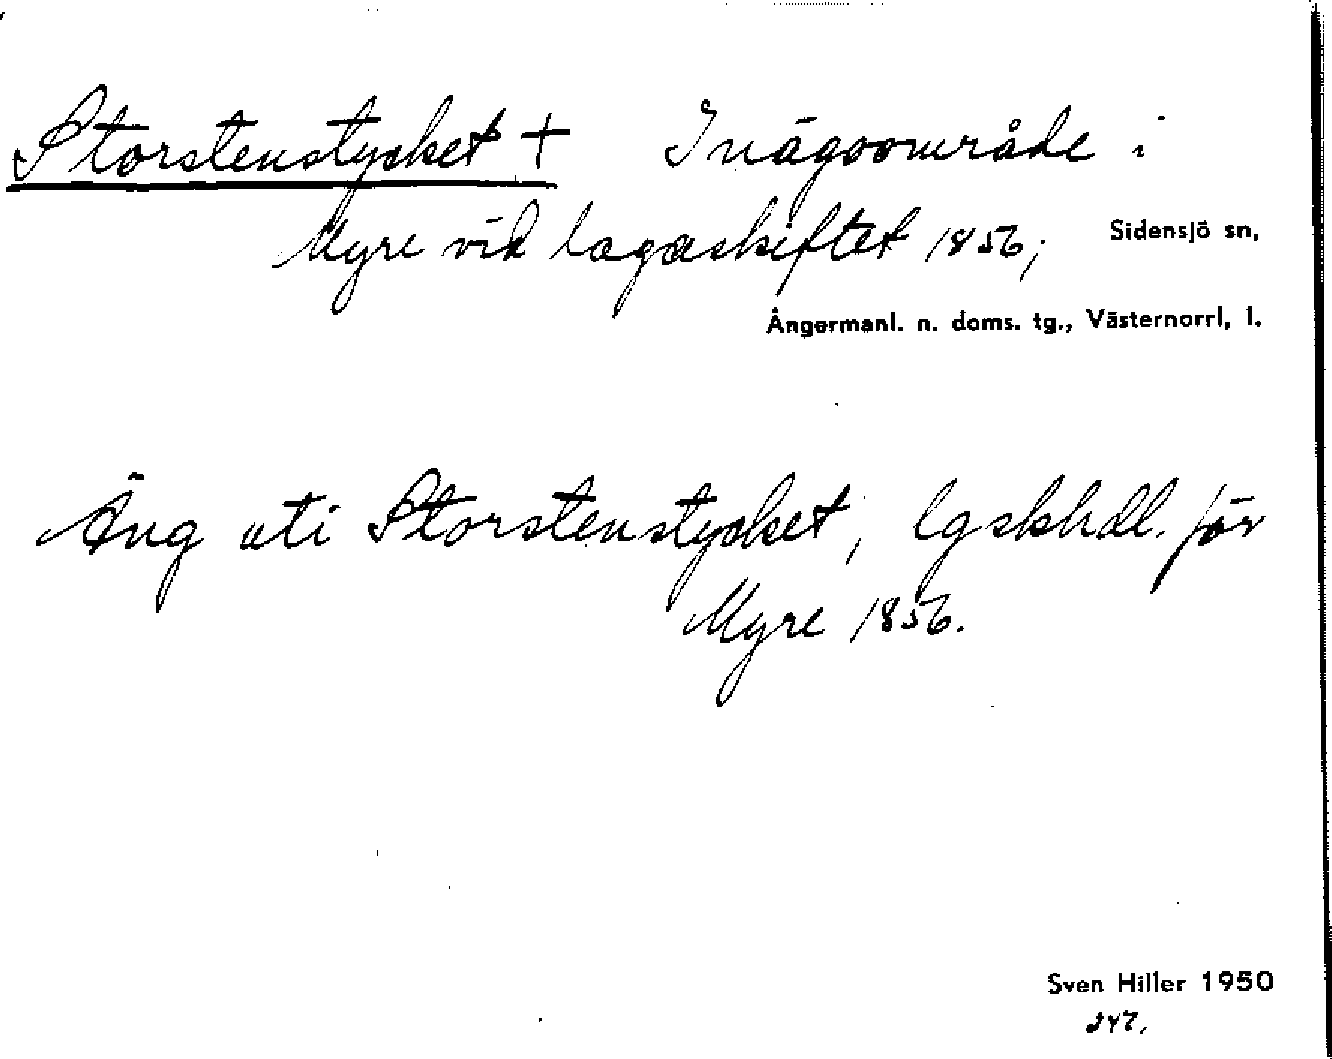 Storstenstycket + Inägoområde i
Myre vid lagaskiftet 1856; Sidensjö sn,
Ångermanl. n. doms. tg., Västernorrl. l.
Äng uti Storstenstycket, lgskhdl. för
Myre 1856.
Sven Hiller 1950
247.